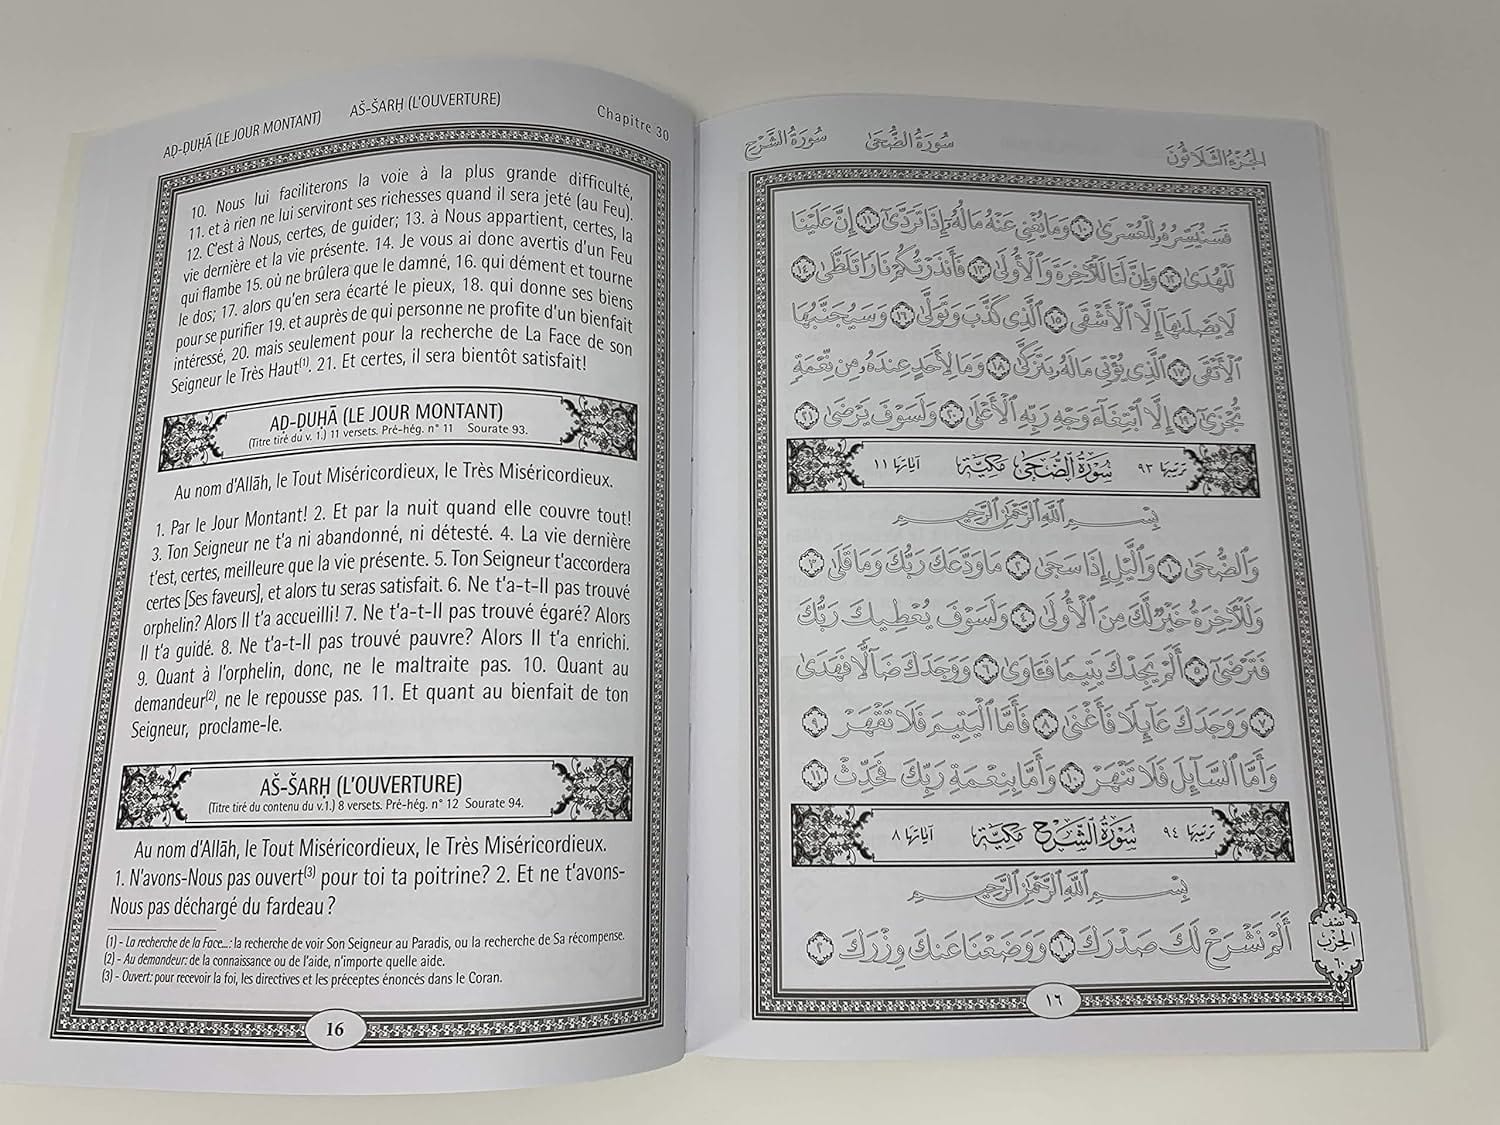 AḌ-ḌUḤĀ (LE JOUR MONTANT) AŠ-ŠARḤ (L'OUVERTURE) Chapitre 30
10. Nous lui faciliterons la voie à la plus grande difficulté,
11. et à rien ne lui serviront ses richesses quand il sera jeté (au Feu).
12. C'est à Nous, certes, de guider; 13. à Nous appartient, certes, la
vie dernière et la vie présente. 14. Je vous ai donc avertis d'un Feu
qui flambe 15. où ne brûlera que le damné, 16. qui dément et tourne
le dos; 17. alors qu'en sera écarté le pieux, 18. qui donne ses biens
pour se purifier 19. et auprès de qui personne ne profite d'un bienfait
intéressé, 20. mais seulement pour la recherche de La Face de son
Seigneur le Très Haut(1). 21. Et certes, il sera bientôt satisfait!
AḌ-ḌUḤĀ (LE JOUR MONTANT)
(Titre tiré du v. 1.) 11 versets. Pré-hég. n° 11 Sourate 93.
Au nom d'Allāh, le Tout Miséricordieux, le Très Miséricordieux.
1. Par le Jour Montant! 2. Et par la nuit quand elle couvre tout!
3. Ton Seigneur ne t'a ni abandonné, ni détesté. 4. La vie dernière
t'est, certes, meilleure que la vie présente. 5. Ton Seigneur t'accordera
certes [Ses faveurs], et alors tu seras satisfait. 6. Ne t'a-t-Il pas trouvé
orphelin? Alors Il t'a accueilli! 7. Ne t'a-t-Il pas trouvé égaré? Alors
Il t'a guidé. 8. Ne t'a-t-Il pas trouvé pauvre? Alors Il t'a enrichi.
9. Quant à l'orphelin, donc, ne le maltraite pas. 10. Quant au
demandeur(2), ne le repousse pas. 11. Et quant au bienfait de ton
Seigneur, proclame-le.
AŠ-ŠARḤ (L'OUVERTURE)
(Titre tiré du contenu du v.1.) 8 versets. Pré-hég. n° 12 Sourate 94.
Au nom d'Allāh, le Tout Miséricordieux, le Très Miséricordieux.
1. N'avons-Nous pas ouvert(3) pour toi ta poitrine? 2. Et ne t'avons-
Nous pas déchargé du fardeau ?
(1) - La recherche de la Face...: la recherche de voir Son Seigneur au Paradis, ou la recherche de Sa récompense.
(2) - Au demandeur: de la connaissance ou de l'aide, n'importe quelle aide.
(3) - Ouvert: pour recevoir la foi, les directives et les préceptes énoncés dans le Coran.
16
الجُزْءُ الثَّلَاثُونَ سُورَةُ الضُّحَىٰ سُورَةُ الشَّرْحِ
فَسَنُيَسِّرُهُۥ لِلْعُسْرَىٰ ١٠ وَمَا يُغْنِى عَنْهُ مَالُهُۥٓ إِذَا تَرَدَّىٰٓ ١١ إِنَّ عَلَيْنَا
لَلْهُدَىٰ ١٢ وَإِنَّ لَنَا لَلْـَٔاخِرَةَ وَٱلْأُولَىٰ ١٣ فَأَنذَرْتُكُمْ نَارًا تَلَظَّىٰ ١٤
لَا يَصْلَىٰهَآ إِلَّا ٱلْأَشْقَى ١٥ ٱلَّذِى كَذَّبَ وَتَوَلَّىٰ ١٦ وَسَيُجَنَّبُهَا
ٱلْأَتْقَى ١٧ ٱلَّذِى يُؤْتِى مَالَهُۥ يَتَزَكَّىٰ ١٨ وَمَا لِأَحَدٍ عِندَهُۥ مِن نِّعْمَةٍ
تُجْزَىٰٓ ١٩ إِلَّا ٱبْتِغَآءَ وَجْهِ رَبِّهِ ٱلْأَعْلَىٰ ٢٠ وَلَسَوْفَ يَرْضَىٰ ٢١
ترتيبها ٩٣ سُورَةُ الضُّحَىٰ مَكِيَّة آياتها ١١
بِسْمِ ٱللَّهِ ٱلرَّحْمَٰنِ ٱلرَّحِيمِ
وَٱلضُّحَىٰ ١ وَٱلَّيْلِ إِذَا سَجَىٰ ٢ مَا وَدَّعَكَ رَبُّكَ وَمَا قَلَىٰ ٣
وَلَلْـَٔاخِرَةُ خَيْرٌ لَّكَ مِنَ ٱلْأُولَىٰ ٤ وَلَسَوْفَ يُعْطِيكَ رَبُّكَ
فَتَرْضَىٰٓ ٥ أَلَمْ يَجِدْكَ يَتِيمًا فَـَٔاوَىٰ ٦ وَوَجَدَكَ ضَآلًّا فَهَدَىٰ
٧ وَوَجَدَكَ عَآئِلًا فَأَغْنَىٰ ٨ فَأَمَّا ٱلْيَتِيمَ فَلَا تَقْهَرْ ٩
وَأَمَّا ٱلسَّآئِلَ فَلَا تَنْهَرْ ١٠ وَأَمَّا بِنِعْمَةِ رَبِّكَ فَحَدِّثْ ١١
ترتيبها ٩٤ سُورَةُ الشَّرْحِ مَكِيَّة آياتها ٨
بِسْمِ ٱللَّهِ ٱلرَّحْمَٰنِ ٱلرَّحِيمِ
أَلَمْ نَشْرَحْ لَكَ صَدْرَكَ ١ وَوَضَعْنَا عَنكَ وِزْرَكَ ٢
نصف
الحزب
٦٠
١٦